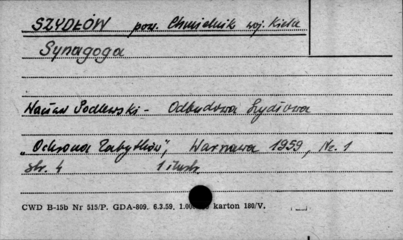 SZYDŁÓW pow. Chmielnik woj. Kielce
Synagoga
Wacław Podlewski - Odbudowa Szydłowa
"Ochrona Zabytków", Warszawa 1959, Nr. 1
str. 4 1 ilustr.
CWD B-15b Nr 515/P. GDA-809. 6.3.59. karton 180/V.